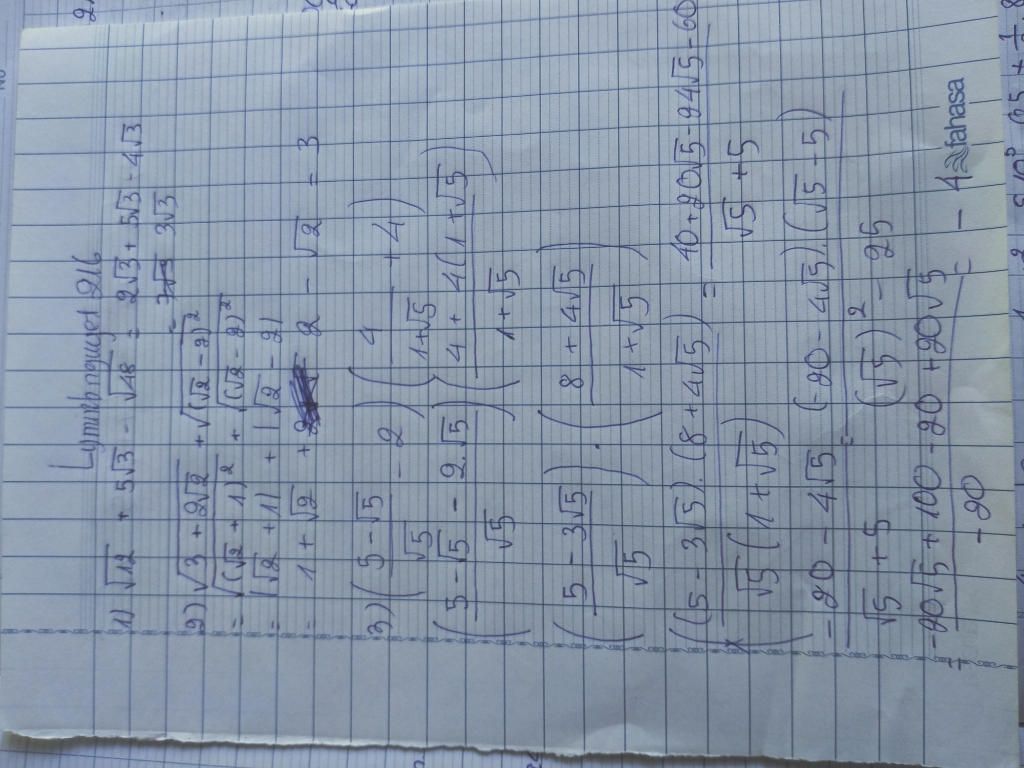 1) √12 + 5√3 - √48 = 2√3 + 5√3 - 4√3
= 3√3
2) √3 + 2√2 + √(√2 - 2)²
= √(√2 + 1)² + √(√2 - 2)²
= |√2 + 1| + |√2 - 2|
= 1 + √2 + 2 - √2 = 3
3) (5 - √5 / √5 - 2) (4 / 1+√5 + 4)
(5 - √5 - 2.√5 / √5) (4 + 4(1+√5) / 1+√5)
(5 - 3√5 / √5) . (8 + 4√5 / 1+√5)
((5 - 3√5).(8 + 4√5) / √5(1+√5)) = 40 + 20√5 - 24√5 - 60 / √5 + 5
-20 - 4√5 / √5 + 5 = (-20 - 4√5).(√5 - 5) / (√5)² - 25
= -20√5 + 100 - 20 + 20√5 / -20 = -4
fahasa